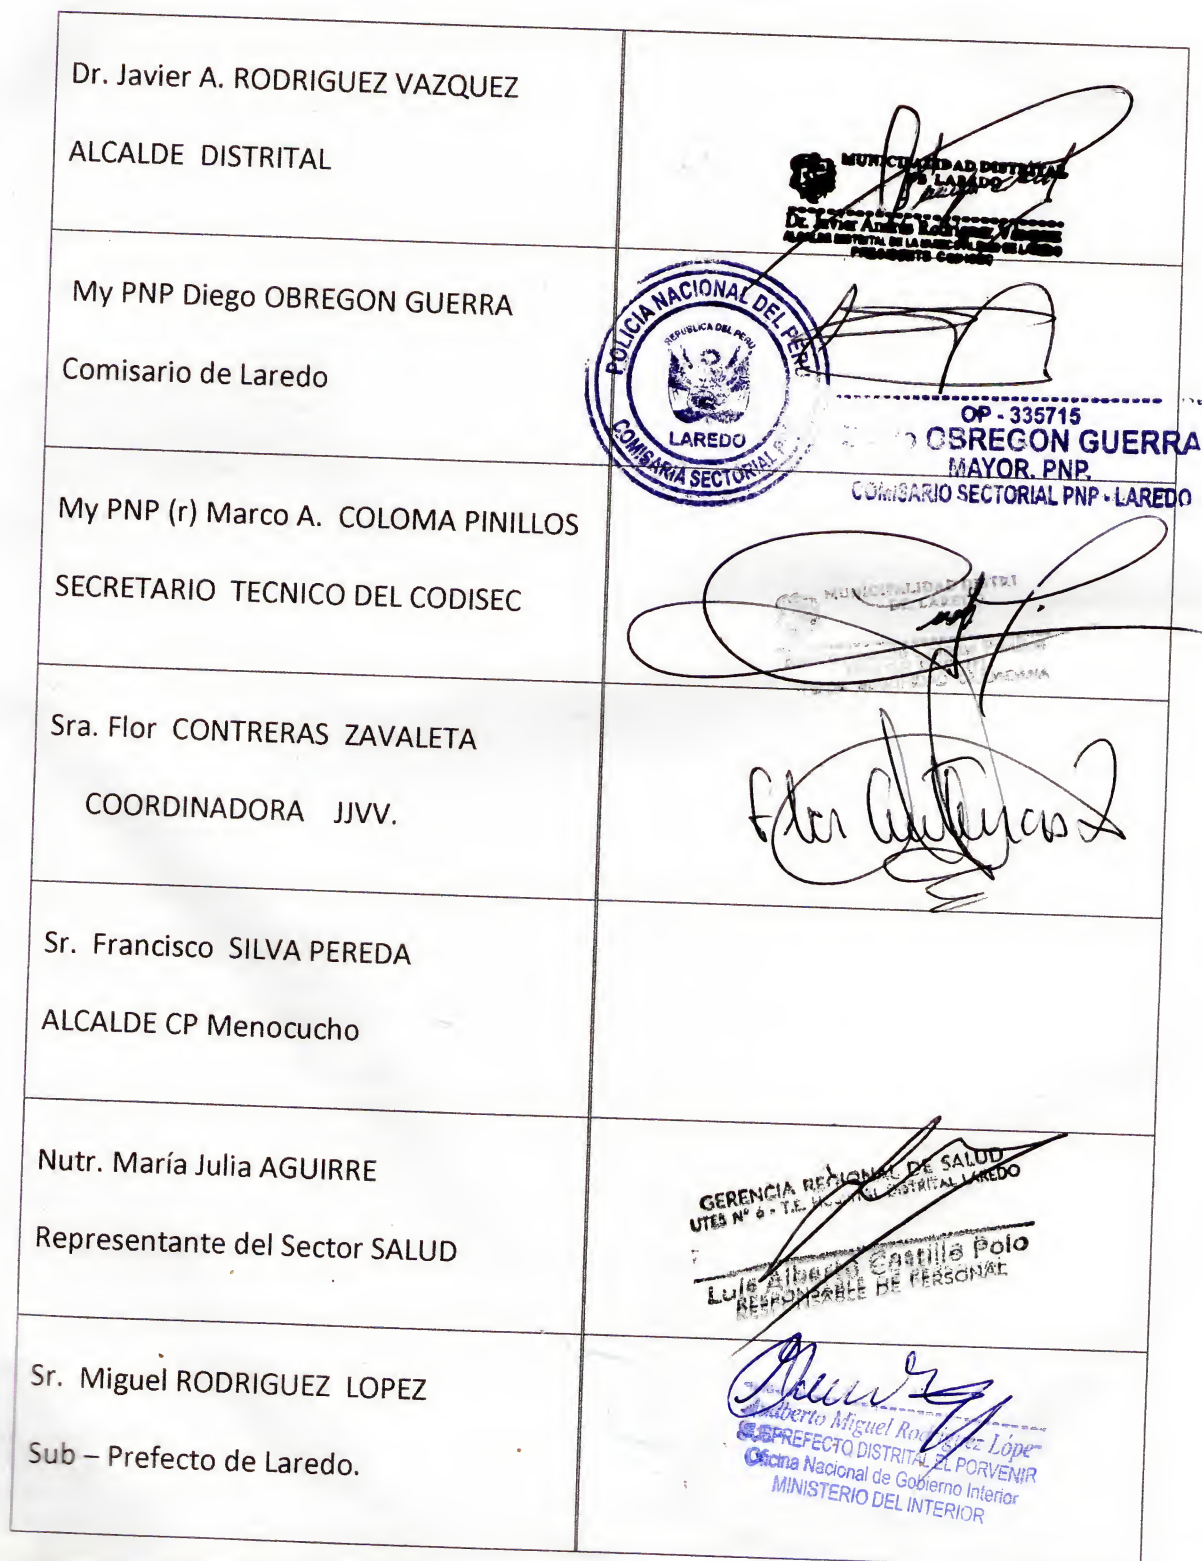 Dr. Javier A. RODRIGUEZ VAZQUEZ
ALCALDE DISTRITAL
MUNICIPALIDAD DISTRITAL
DE LAREDO
Dr. Javier Andrés Rodriguez Vásquez
ALCALDE DISTRITAL DE LA MUNICIPALIDAD DE LAREDO
PRESIDENTE CODISEC
My PNP Diego OBREGON GUERRA
Comisario de Laredo
POLICIA NACIONAL DEL PERU
REPUBLICA DEL PERU
LAREDO
COMISARIA SECTORIAL
OP - 335715
OBREGON GUERRA
MAYOR. PNP.
COMISARIO SECTORIAL PNP - LAREDO
My PNP (r) Marco A. COLOMA PINILLOS
SECRETARIO TECNICO DEL CODISEC
MUNICIPALIDAD DISTRI
DE LAREDO
Sra. Flor CONTRERAS ZAVALETA
COORDINADORA JJVV.
Flor Contreras Z
Sr. Francisco SILVA PEREDA
ALCALDE CP Menocucho
Nutr. María Julia AGUIRRE
Representante del Sector SALUD
GERENCIA REGIONAL DE SALUD
UTES N° 6 - T.E. HOSPITAL DISTRITAL LAREDO
Luis Alberto Castillo Polo
RESPONSABLE DE PERSONAL
Sr. Miguel RODRIGUEZ LOPEZ
Sub – Prefecto de Laredo.
Miguel Rodriguez López
SUBPREFECTO DISTRITAL EL PORVENIR
Oficina Nacional de Gobierno Interior
MINISTERIO DEL INTERIOR